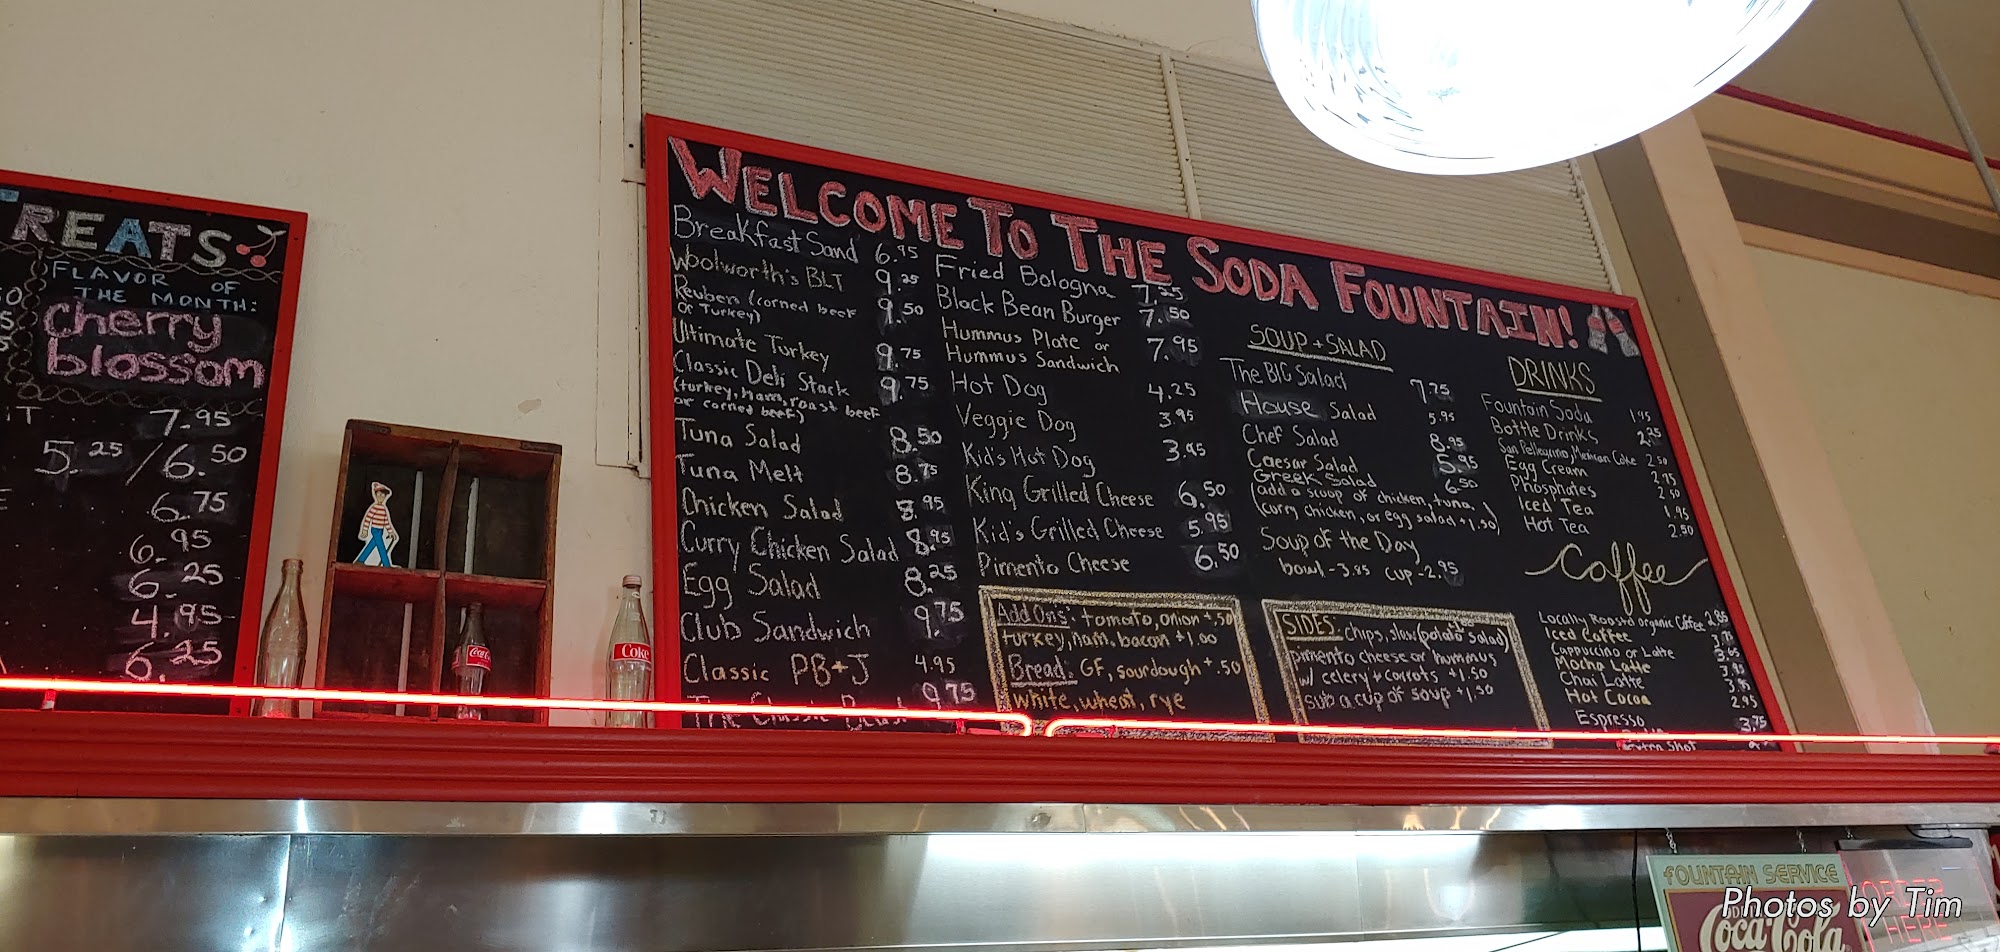 TREATS
FLAVOR OF
THE MONTH:
cherry
blossom
7.95
5.25/6.50
6.75
6.95
6.25
4.95
6.25
WELCOME TO THE SODA FOUNTAIN!
Breakfast Sand 6.95
Woolworth's BLT 9.25
Reuben (corned beef 9.50
or Turkey)
Ultimate Turkey 9.75
Classic Deli Stack 9.75
(turkey, ham, roast beef
or corned beef)
Tuna Salad 8.50
Tuna Melt 8.75
Chicken Salad 8.95
Curry Chicken Salad 8.95
Egg Salad 8.25
Club Sandwich 9.75
Classic PB+J 4.95
The Classic 9.75
Fried Bologna 7.25
Black Bean Burger 7.50
Hummus Plate or 7.95
Hummus Sandwich
Hot Dog 4.25
Veggie Dog 3.95
Kid's Hot Dog 3.95
King Grilled Cheese 6.50
Kid's Grilled Cheese 5.95
Pimento Cheese 6.50
Add Ons: tomato, onion +.50
turkey, ham, bacon +1.00
Bread: GF, sourdough +.50
white, wheat, rye
SOUP + SALAD
The BIG Salad 7.75
House Salad 5.95
Chef Salad 8.95
Caesar Salad 5.95
Greek Salad 6.50
(add a scoop of chicken, tuna,
curry chicken, or egg salad +1.50)
Soup of the Day
bowl - 3.95 cup - 2.95
SIDES: chips, slaw (potato salad)
pimento cheese or hummus
w/ celery + carrots +1.50
sub a cup of soup +1.50
DRINKS
Fountain Soda 1.95
Bottle Drinks 2.25
San Pellegrino, Mexican Coke 2.50
Egg Cream 2.75
Phosphates 2.50
Iced Tea 1.95
Hot Tea 2.50
Coffee
Locally Roasted Organic Coffee 2.85
Iced Coffee
Cappuccino or Latte
Mocha Latte
Chai Latte
Hot Cocoa 2.95
Espresso 3.75
Extra Shot
Coke
Coca-Cola
FOUNTAIN SERVICE
Coca-Cola
ORDER
HERE
Photos by Tim